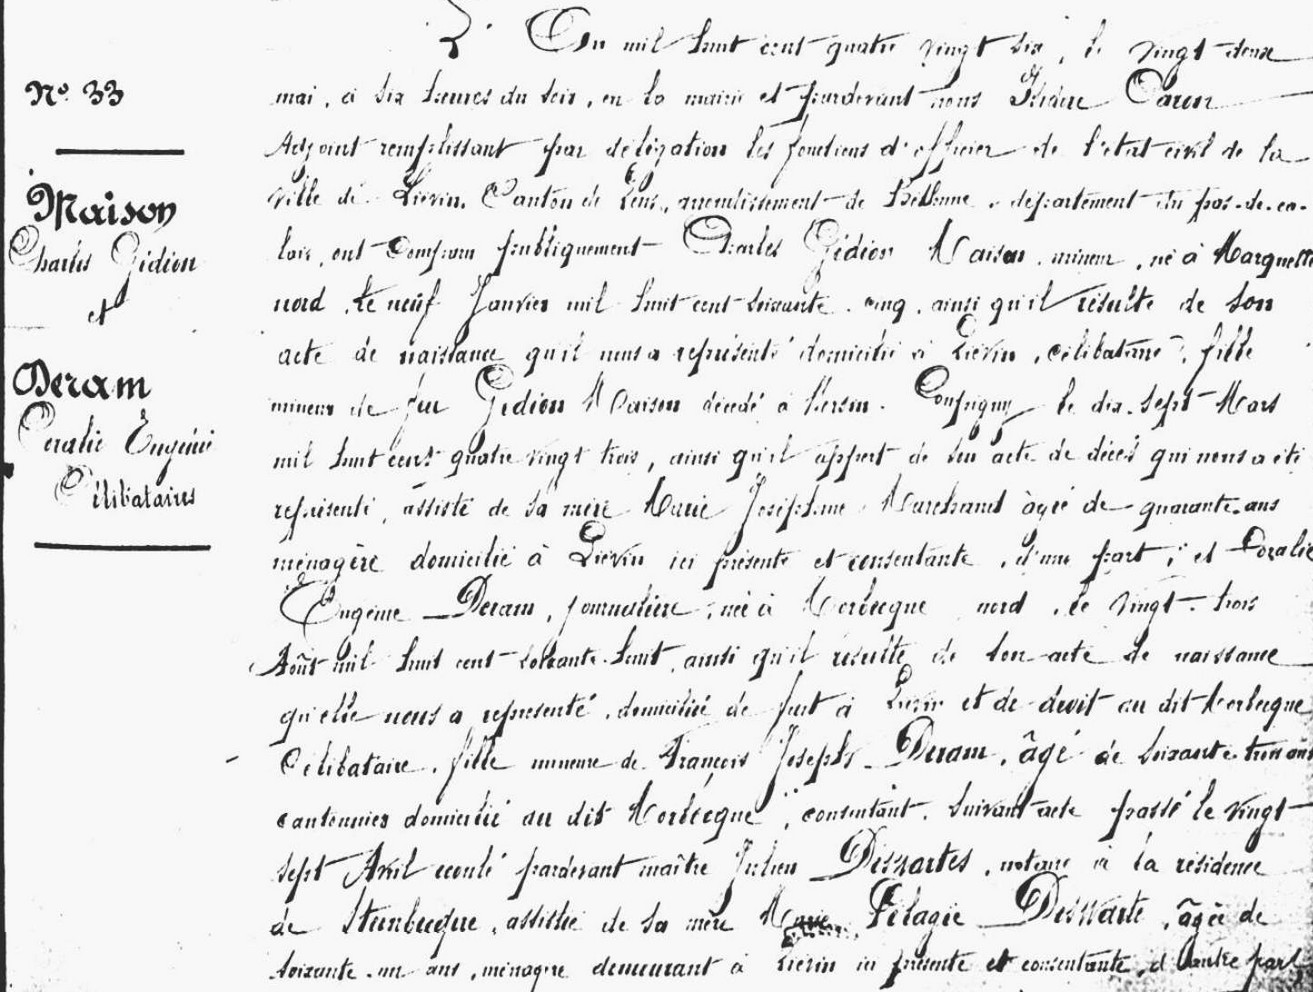 L'an mil huit cent quatre vingt six, le vingt deux
N° 33
mai, à six heures du soir, en la mairie et pardevant nous Isidore Caron
Adjoint remplissant par délégation les fonctions d'officier de l'état civil de la
ville de Liévin, Canton de Lens, arrondissement de Béthune, département du pas-de-ca-
lais, ont comparu publiquement Charles Gédéon Maison, mineur, né à Marquette
nord, le neuf Janvier mil huit cent soixante-cinq, ainsi qu'il résulte de son
acte de naissance qu'il nous a représenté domicilié à Liévin, célibataire, fille
mineur de feu Gédéon Maison décédé à Hersin-Coupigny le dix-sept Mars
mil huit cent quatre vingt trois, ainsi qu'il appert de son acte de décès qui nous a été
représenté, assisté de sa mère Marie Joséphine Marchand âgée de quarante ans
ménagère domicilié à Liévin ici présente et consentante, d'une part; et Coralie
Eugénie Deram, journalière, née à Morbecque nord, le vingt-trois
Août mil huit cent soixante-huit, ainsi qu'il résulte de son acte de naissance
qu'elle nous a représenté, domiciliée de fait à Liévin et de droit au dit Morbecque
Célibataire, fille mineure de François Joseph Deram, âgé de soixante-trois ans
cantonnier domicilié au dit Morbecque, consentant, suivant acte passé le vingt
sept Avril écoulé pardevant maître Julien Dessartes, notaire à la résidence
de Steenbecque, assistée de sa mère Pélagie Deswarte, âgée de
soixante-un ans, ménagère demeurant à Liévin ici présente et consentante, d'autre part
Maison
Charles Gédéon
et
Deram
Coralie Eugénie
Célibataires